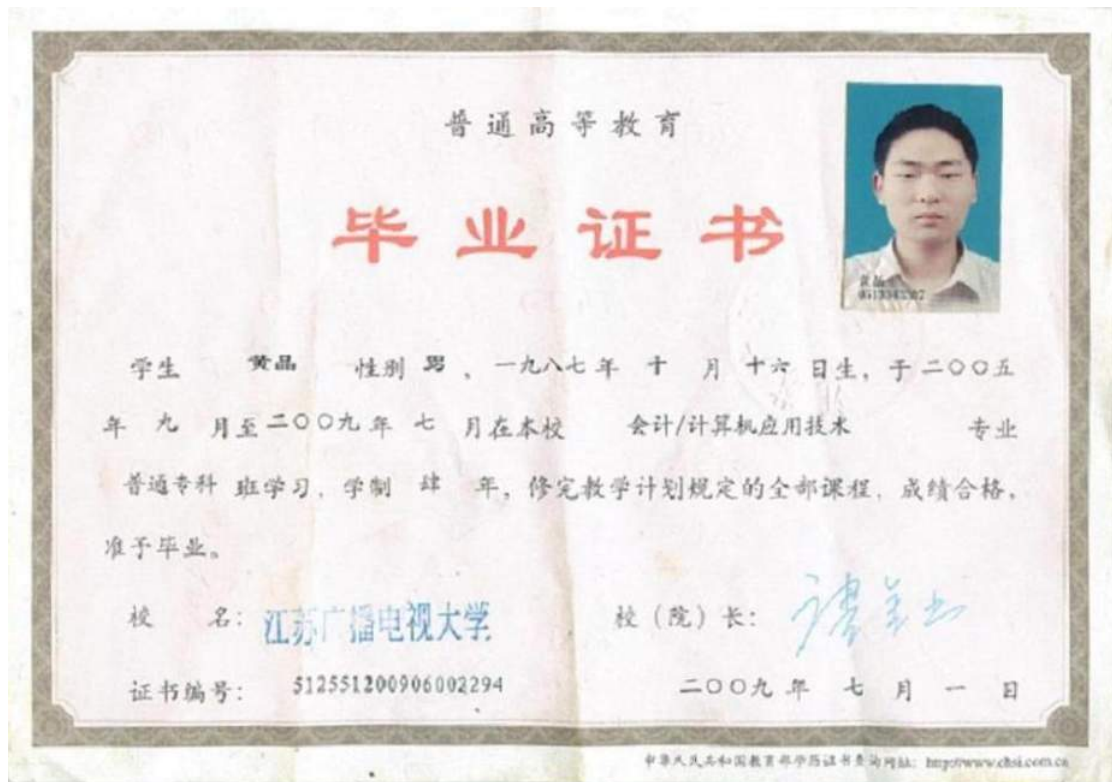 普通高等教育
毕业证书
黄晶
学生 黄晶 性别 男 ，一九八七年 十 月 十六 日生，于二〇〇五
年 九 月至二〇〇九年 七 月在本校 会计/计算机应用技术 专业
普通专科 班学习，学制 肆 年，修完教学计划规定的全部课程，成绩合格，
准予毕业。
校 名： 江苏广播电视大学 校（院）长：
证书编号： 512551200906002294 二〇〇九年 七 月 一 日
中华人民共和国教育部学历证书查询网址：http://www.chsi.com.cn